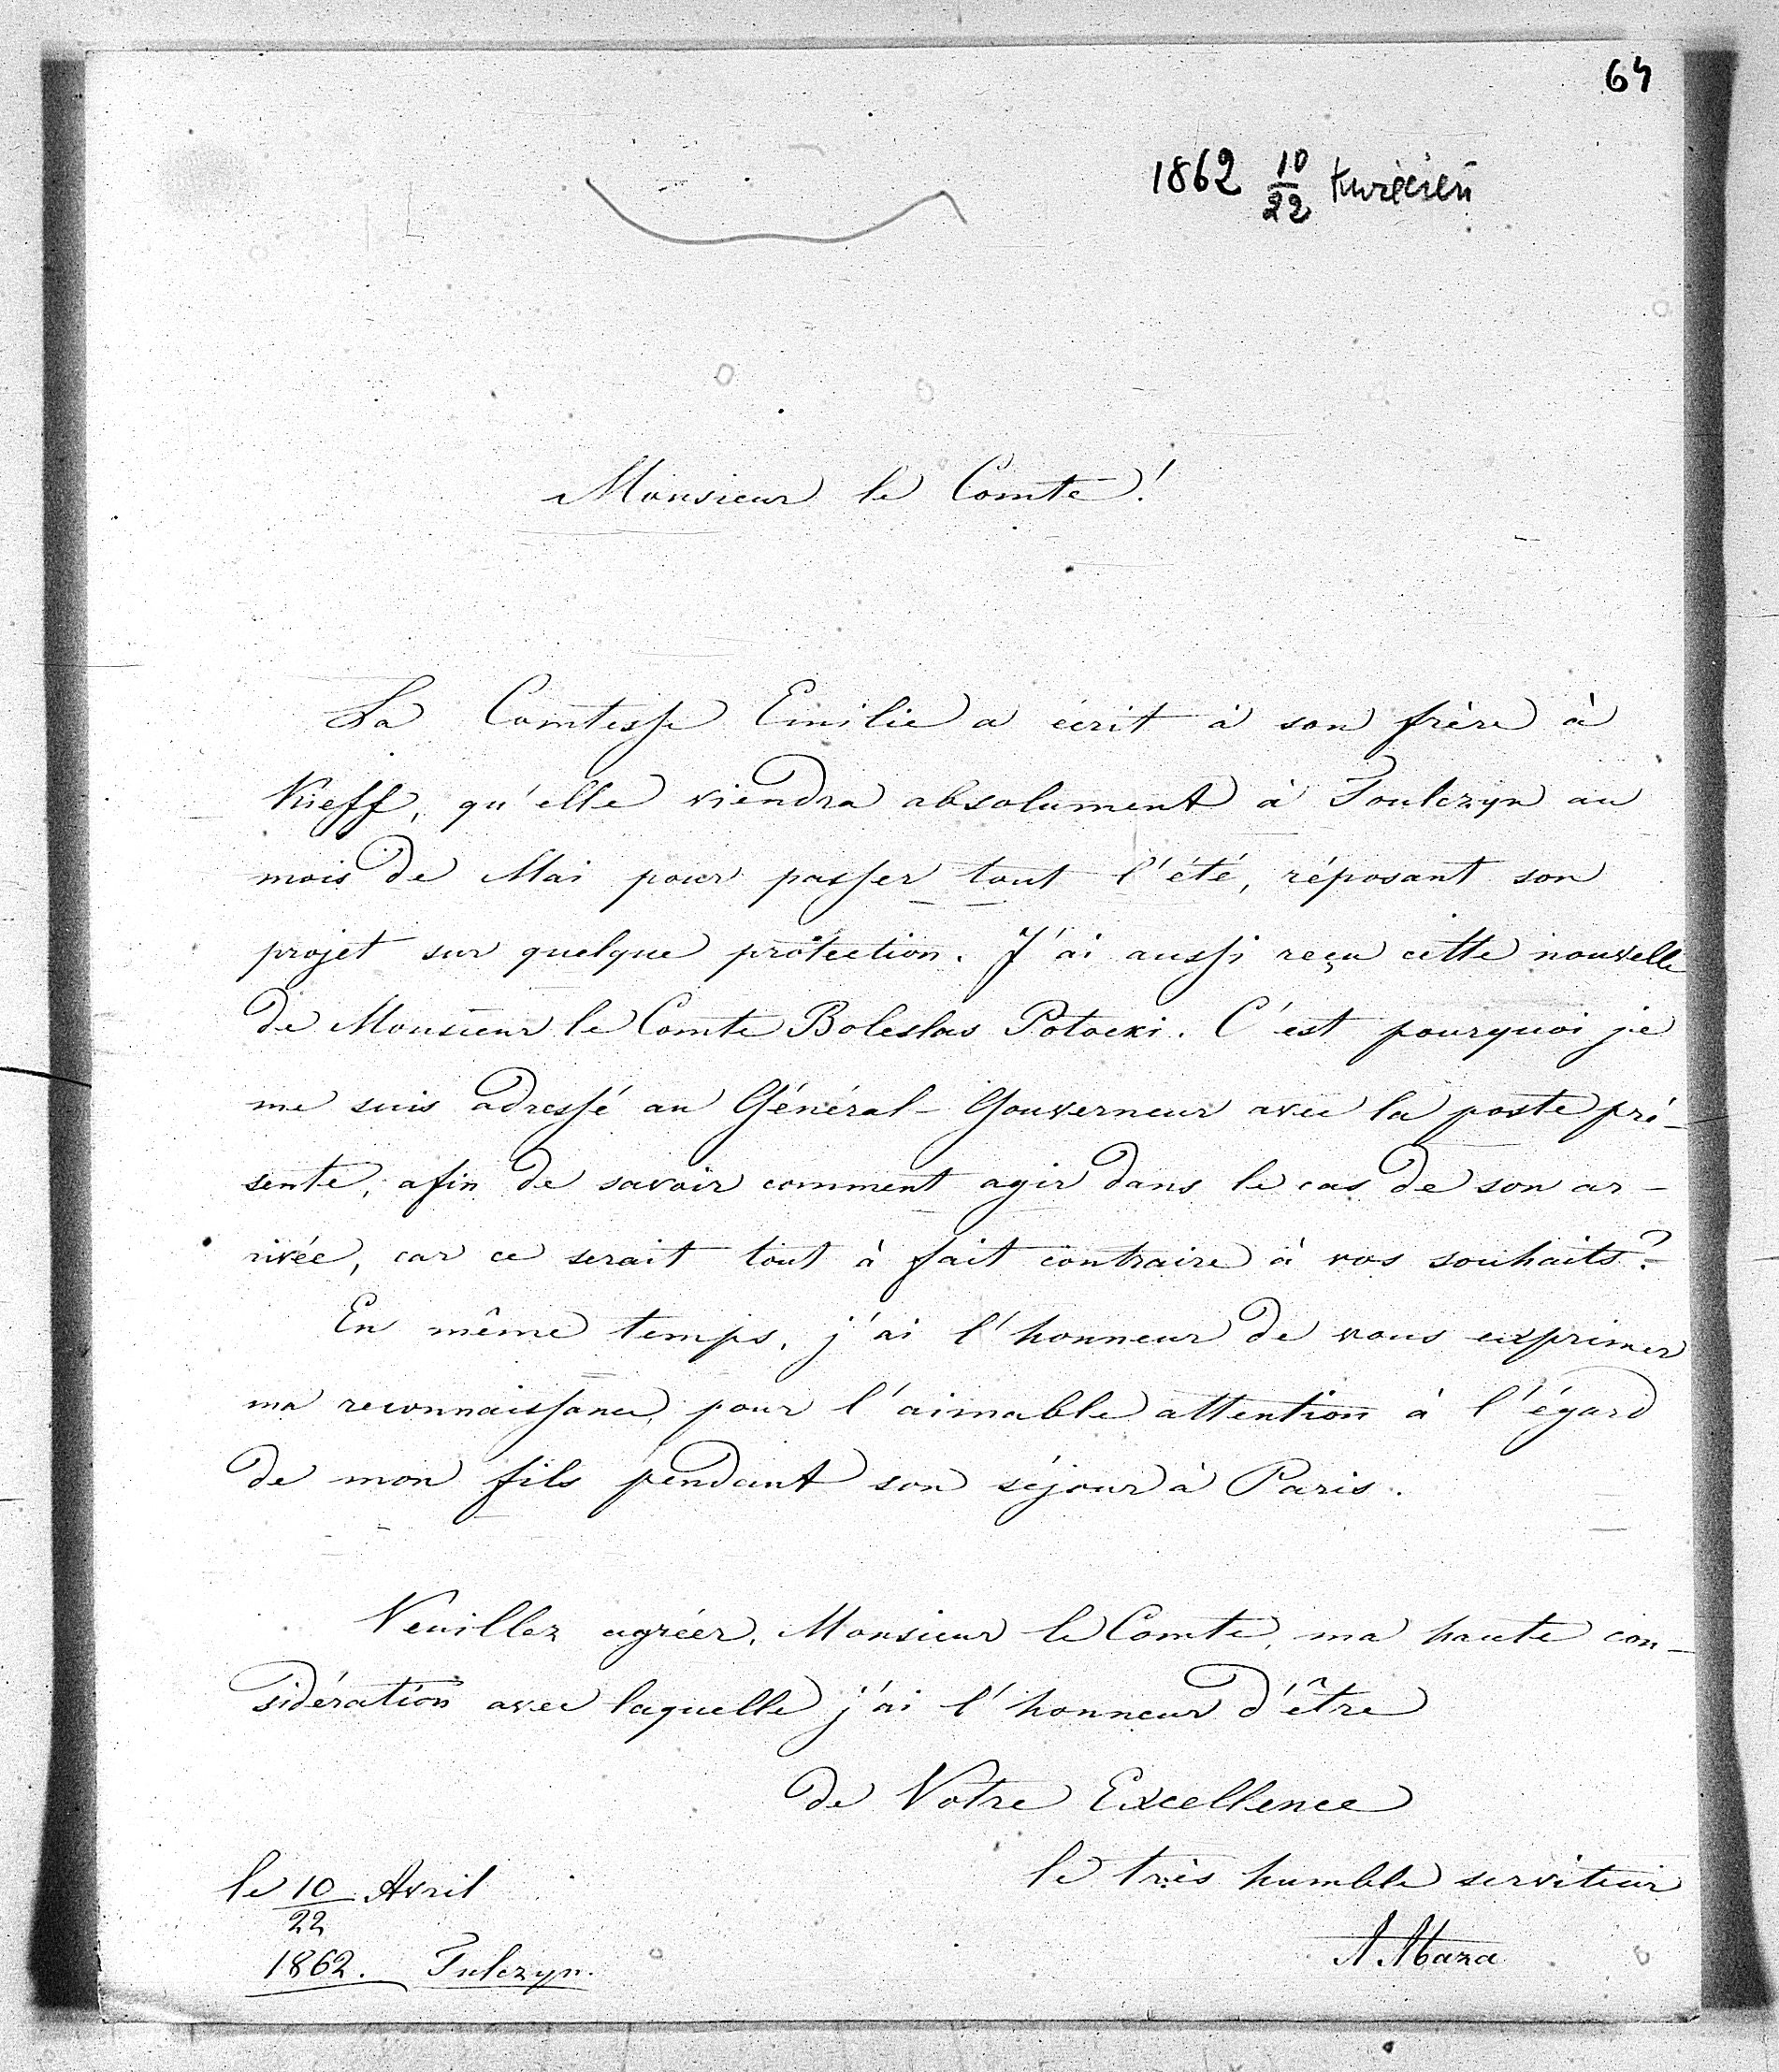 64
1862 10/22 kwiecień
Monsieur le Comte!
La Comtesse Emilie a écrit à son frère à
Kieff, qu'elle viendra absolument à Toulczyn au
mois de Mai pour passer tout l'été, réposant son
projet sur quelque protection. J'ai aussi reçu cette nouvelle
de Monsieur le Comte Boleslas Potocki. C'est pourquoi je
me suis adressé au Général-Gouverneur avec la poste pré-
sente, afin de savoir comment agir dans le cas de son ar-
rivée, car ce serait tout à fait contraire à vos souhaits?
En même temps, j'ai l'honneur de vous exprimer
ma reconnaissance pour l'aimable attention à l'égard
de mon fils pendant son séjour à Paris.
Veuillez agréer, Monsieur le Comte, ma haute con-
sidération avec laquelle j'ai l'honneur d'être
de Votre Excellence
le très humble serviteur
A. Abaza
le 10/22 Avril
1862. Tulczyn.